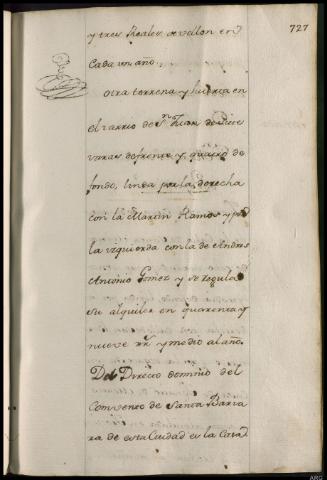 727
y tres Reales de vellon en
Cada un año.
otra terrena y huerta en
el varrio de Sn. Juan de Diez
varas de frente y quatro de
fondo, linea por la derecha
con la Martin Ramos y por
la izquierda con la de Andres
Antonio Gomez y se regula
su alquiler en quarenta y
nueve rr. y medio al año.
Del Directo dominio del
Convento de Santa Barva
ra de esta Ciudad es la Casa
ARG